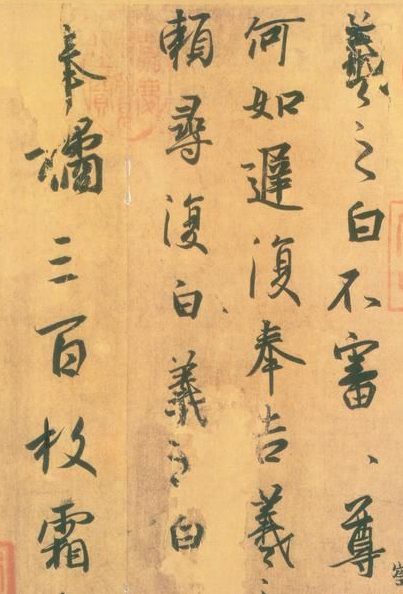 羲之白不審、尊
何如遲復奉告羲
賴尋復白羲之白
奉橘三百枚霜